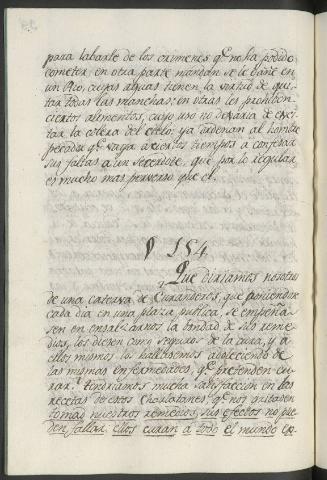 para labarle de los crimenes q.e no ha podido
cometer en otra parte mandan se le bañe en
un Rio, cuyas aguas tienen la virtud de qui-
tar todas las manchas: en otras les prohiben
ciertos alimentos, cuyo uso no dexaria de exci-
tar la colera del cielo; ya ordenan al hombre
pecador q.e vaya a ciertos tiempos a confesar
sus faltas a un sacerdote, que por lo regular
es mucho mas perverso que el.
§ 154
¿Que diriamos nosotros
de una caterva de Curanderos, que poniendose
cada dia en una plaza publica, se empeña-
sen en ensalzarnos la bondad de sus reme-
dios, los diesen como seguros de la cura, y a
ellos mismos los hallasemos adoleciendo de
las mismas enfermedades, q.e pretenden cu-
rar? Tendriamos mucha satisfaccion en las
recetas de estos Charlatanes, q.e nos gritasen
tomad nuestros remedios, sus efectos no pue-
den fallar: ellos curan a todo el mundo ex-